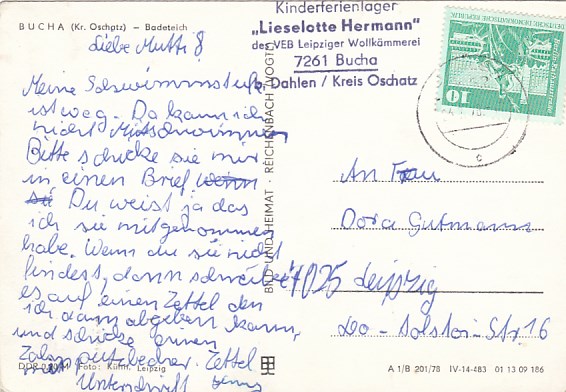 BUCHA (Kr. Oschatz) – Badeteich
Kinderferienlager
„Lieselotte Hermann"
des VEB Leipziger Wollkämmerei
7261 Bucha
Dahlen / Kreis Oschatz
DEUTSCHE DEMOKRATISCHE REPUBLIK
10
c
Liebe Mutti!
Meine Schwimmstufe
ist weg. Da kann ich
nicht Mitschwimmen
Bitte schicke sie mir
in einen Brief wenn
sie Du weist ja das
ich sie mitgenommen
habe. Wenn du sie nicht
findest, dann schreibe
es auf einen Zettel den
ich dann abgeben kann,
und schicke einen
Zettel
Unterschrift
BILD UND HEIMAT · REICHENBACH (VOGTL)
An Frau
Dora Gutmann
7025 Leipzig
Leo-Tolstoi-Str 16
DDR Foto: Kühn, Leipzig
A 1/B 201/78 IV-14-483 01 13 09 186